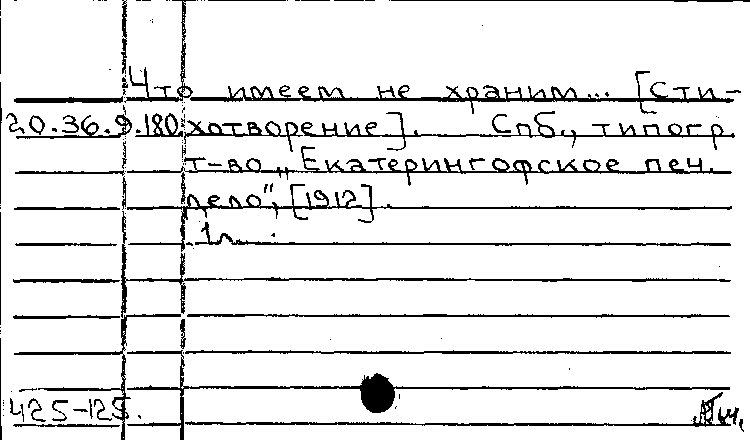 Что имеем не храним... [Сти-
20.36.9.180. хотворение]. Спб., типогр.
т-во „Екатерингофское печ.
дело", [1912].
1л.
425-125.